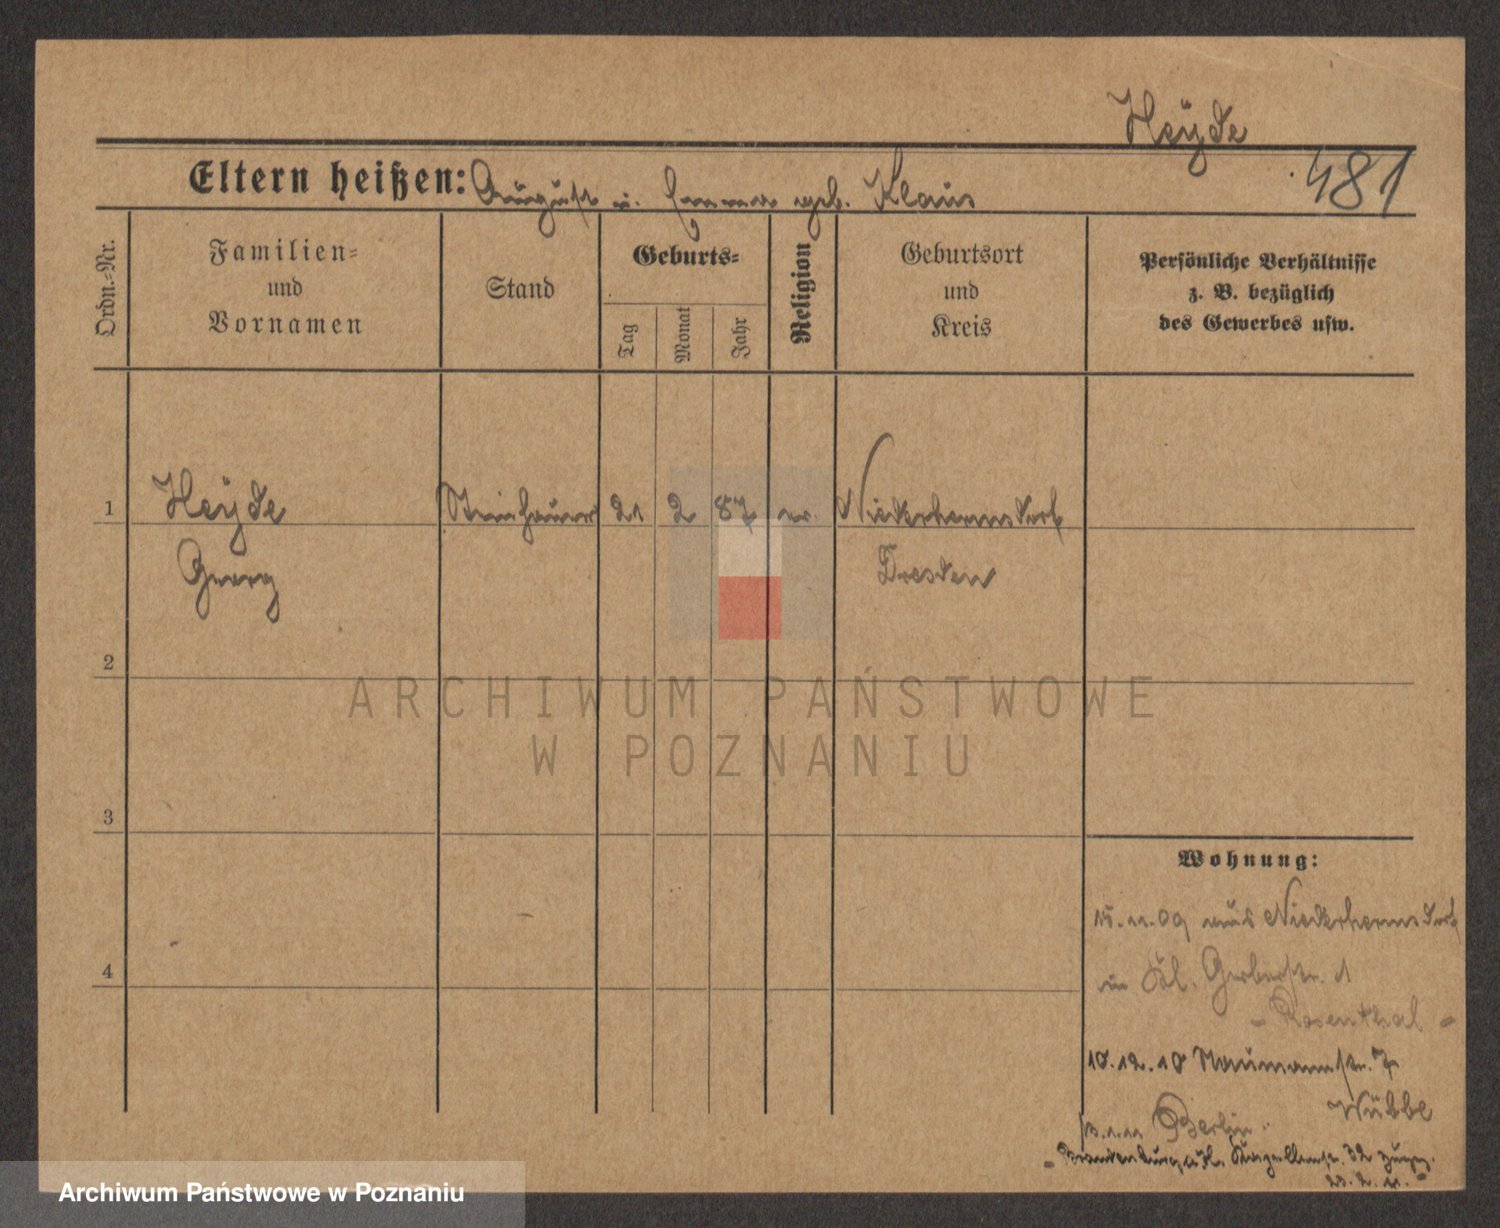 Heyde
481
Eltern heißen: August u. Emma geb. Klaus
Ordn.-Nr.
Familien-
und
Vornamen
Stand
Geburts-
Tag
Monat
Jahr
Religion
Geburtsort
und
Kreis
Persönliche Verhältnisse
z. B. bezüglich
des Gewerbes usw.
1 Heyde Steinhauer 21 2 87 ev. Niederhermsdorf
Georg Dresden
2
3
4
Wohnung:
15.11.09 aus Niederhermsdorf
in Kl. Gerberstr. 1
- Rosenthal -
10.12.10 Naumannstr. 7
Wübbe
Berlin.
Brandenburg a/H. 32 zugez.
ARCHIWUM PAŃSTWOWE
W POZNANIU
Archiwum Państwowe w Poznaniu